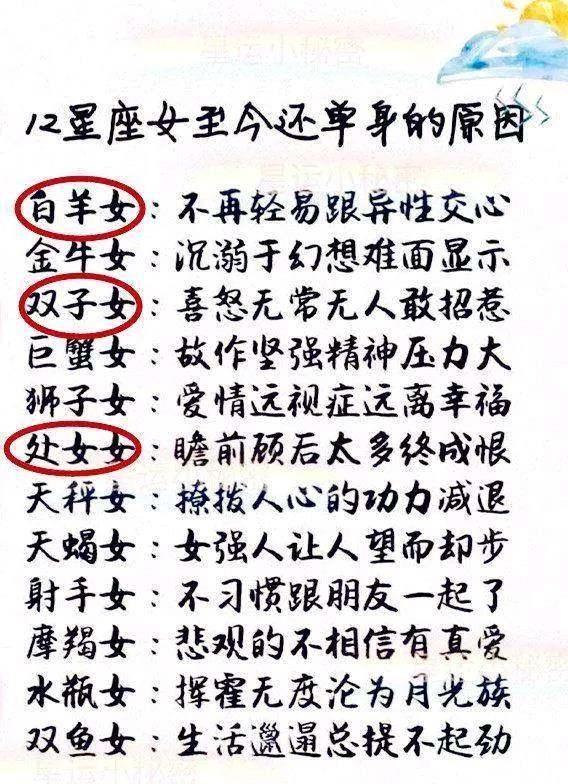 星运小秘密
12星座女至今还单身的原因
星运小秘密
白羊女：不再轻易跟异性交心
金牛女：沉溺于幻想难面显示
双子女：喜怒无常无人敢招惹
巨蟹女：故作坚强精神压力大
狮子女：爱情远视症远离幸福
处女女：瞻前顾后太多终成恨
天秤女：撩拨人心的功力减退
天蝎女：女强人让人望而却步
射手女：不习惯跟朋友一起了
摩羯女：悲观的不相信有真爱
水瓶女：挥霍无度沦为月光族
双鱼女：生活邋遢总提不起劲